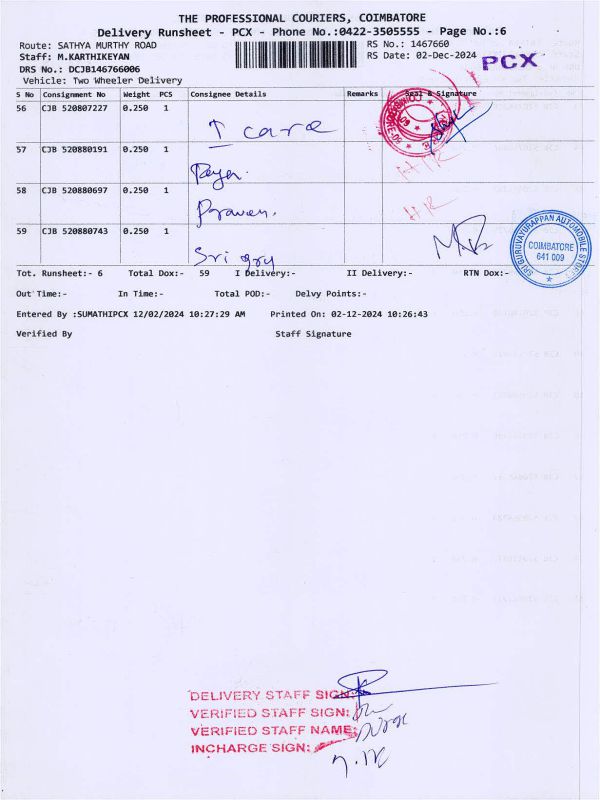 THE PROFESSIONAL COURIERS, COIMBATORE
Delivery Runsheet - PCX - Phone No.:0422-3505555 - Page No.:6
Route: SATHYA MURTHY ROAD
RS No.: 1467660
Staff: M.KARTHIKEYAN
RS Date: 02-Dec-2024
PCX
DRS No.: DCJB146766006
Vehicle: Two Wheeler Delivery
S No Consignment No Weight PCS Consignee Details Remarks Seal & Signature
56 CJB 520807227 0.250 1
care
57 CJB 520880191 0.250 1
HR
58 CJB 520880697 0.250 1
Praveen.
HR
59 CJB 520880743 0.250 1
Sri
SRI GURUVAYURAPPAN AUTOMOBILE STORES
COIMBATORE
641 009
Tot. Runsheet:- 6 Total Dox:- 59 I Delivery:- II Delivery:- RTN Dox:-
Out Time:- In Time:- Total POD:- Delvy Points:-
Entered By :SUMATHIPCX 12/02/2024 10:27:29 AM Printed On: 02-12-2024 10:26:43
Verified By Staff Signature
DELIVERY STAFF SIGN:
VERIFIED STAFF SIGN:
VERIFIED STAFF NAME:
INCHARGE SIGN: